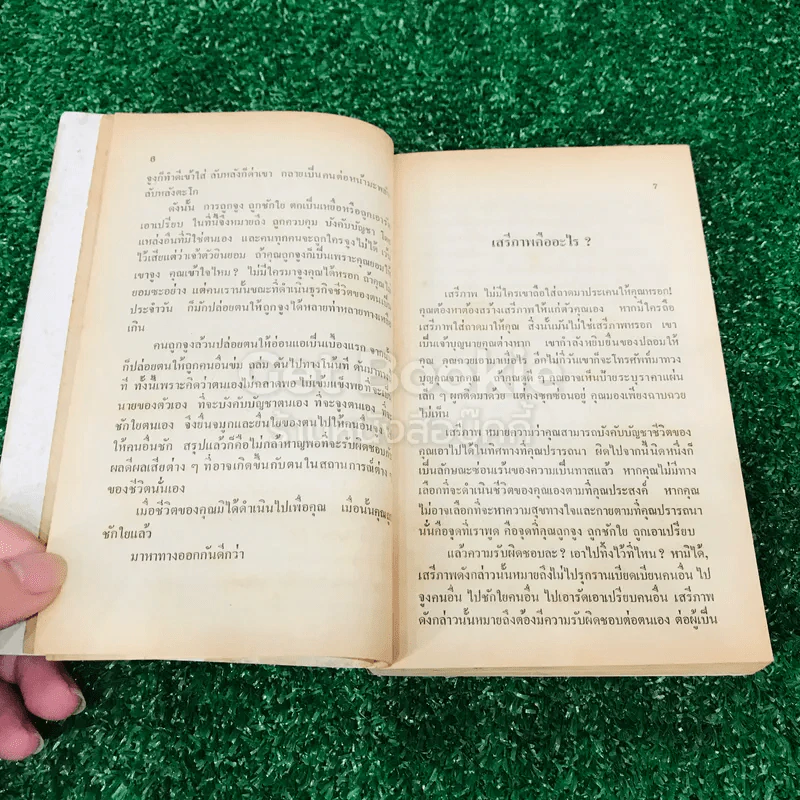 ๘
จูงก็ทำดีเข้าใส่ ลับหลังก็ด่าเขา กลายเป็นคนต่อหน้ามะพลับ
ลับหลังตะโก
ดังนั้น การถูกจูง ถูกชักใย ตกเป็นเหยื่อหรือถูกเอารัด
เอาเปรียบ ในที่นี้จึงหมายถึง ถูกควบคุม บังคับบัญชา โดย
แหล่งอื่นที่มิใช่ตนเอง และคนทุกคนจะถูกใครจูงไม่ได้ เว้น
ไว้เสียแต่ว่าเจ้าตัวยินยอม ถ้าคุณถูกจูงก็เป็นเพราะคุณยอมให้
เขาจูง คุณเข้าใจไหม? ไม่มีใครมาจูงคุณได้หรอก ถ้าคุณไม่
ยอมซะอย่าง แต่คนเรานั้นขณะที่ดำเนินธุรกิจชีวิตของตนเป็น
ประจำวัน ก็มักปล่อยตนให้ถูกจูงได้หลายท่าหลายทางเหลือ
เกิน
คนถูกจูงล้วนปล่อยตนให้อ่อนแอเป็นเบื้องแรก จากนั้น
ก็ปล่อยตนให้ถูกคนอื่นข่ม ลสม ดันไปทางโน้นที ดันมาทางนี้
ที ทั้งนี้ก็เพราะคิดว่าตนเองไม่ฉลาดพอ ไม่เข้มแข็งพอที่จะเป็น
นายของตัวเอง ที่จะบังคับบัญชาตนเอง ที่จะจูงตนเอง ที่จะ
ชักใยตนเอง จึงยื่นจมูกและยื่นใยของตนไปให้คนอื่นจูง
ให้คนอื่นชัก สรุปแล้วก็คือไม่กล้าหาญพอที่จะรับผิดชอบกับ
ผลดีผลเสียต่าง ๆ ที่อาจเกิดขึ้นกับตนในสถานการณ์ต่าง ๆ
ของชีวิตนั่นเอง
เมื่อชีวิตของคุณมิได้ดำเนินไปเพื่อคุณ เมื่อนั้นคุณถูก
ชักใยแล้ว
มาหาทางออกกันดีกว่า
๗
เสรีภาพคืออะไร ?
เสรีภาพ ไม่มีใครเขาถือใส่ถาดมาประเคนให้คุณหรอก!
คุณต้องหาต้องสร้างเสรีภาพให้แก่ตัวคุณเอง หากมีใครถือ
เสรีภาพใส่ถาดมาให้คุณ สิ่งนั้นมันไม่ใช่เสรีภาพหรอก เขา
เป็นเจ้าบุญนายคุณต่างหาก เขากำลังหยิบยื่นของปลอมให้
คุณ คุณควยเอามาเบื่อไร อีกไม่กี่วันเขาก็จะโทรศัพท์มาทวง
บุญคุณจากคุณ ถ้าคุณดูดี ๆ คุณอาจเห็นป้ายระบุราคาแผ่น
เล็ก ๆ ผูกติดมาด้วย แต่คงซุกซ่อนอยู่ คุณมองเพียงฉาบฉวย
ไม่เห็น
เสรีภาพ หมายความว่าคุณสามารถบังคับบัญชาชีวิตของ
คุณเอาไปได้ในทิศทางที่คุณปรารถนา ผิดไปจากนี้นิดหนึ่งก็
เป็นลักษณะซ่อนเร้นของความเป็นทาสแล้ว หากคุณไม่มีทาง
เลือกที่จะดำเนินชีวิตของคุณเองตามที่คุณประสงค์ หากคุณ
ไม่อาจเลือกที่จะหาความสุขทางใจและกายตามที่คุณปรารถนา
นั่นคือจุดที่เราพูด คือจุดที่คุณถูกจูง ถูกชักใย ถูกเอาเปรียบ
แล้วความรับผิดชอบละ? เอาไปทิ้งไว้ที่ไหน? หามิได้,
เสรีภาพดังกล่าวนั้นหมายถึงไม่ไปรุกรานเบียดเบียนคนอื่น ไป
จูงคนอื่น ไปชักใยคนอื่น ไปเอารัดเอาเปรียบคนอื่น เสรีภาพ
ดังกล่าวนั้นหมายถึงต้องมีความรับผิดชอบต่อตนเอง ต่อผู้เป็น
GetBookie
ร้านหนังสือบุ๊กกี้